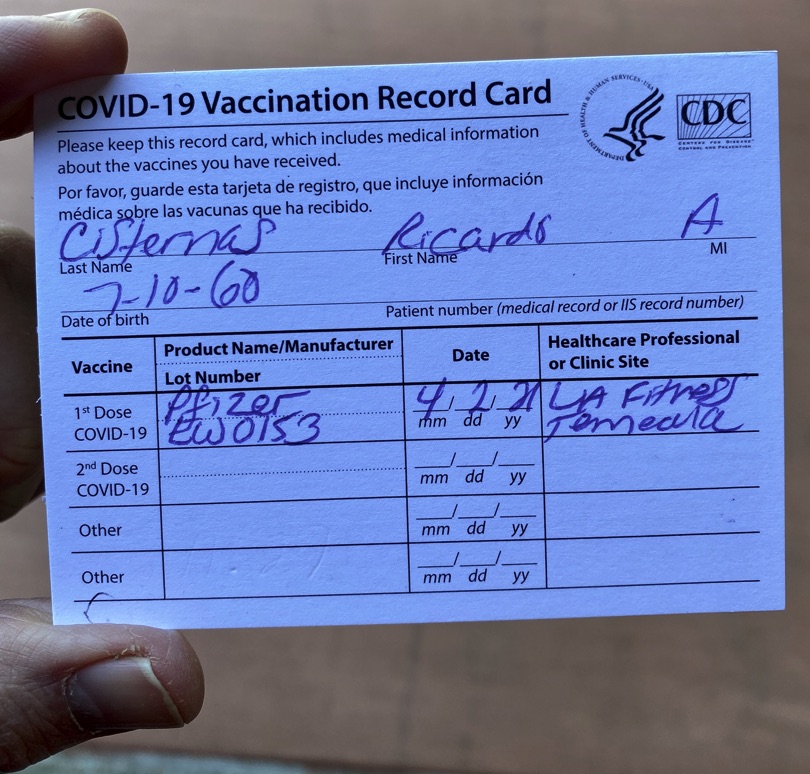 COVID-19 Vaccination Record Card
DEPARTMENT OF HEALTH & HUMAN SERVICES • USA
CDC
CENTERS FOR DISEASE
CONTROL AND PREVENTION
Please keep this record card, which includes medical information
about the vaccines you have received.
Por favor, guarde esta tarjeta de registro, que incluye información
médica sobre las vacunas que ha recibido.
Cisternas Ricardo A
Last Name First Name MI
7-10-60
Date of birth Patient number (medical record or IIS record number)
Vaccine Product Name/Manufacturer Date Healthcare Professional
Lot Number or Clinic Site
1st Dose Pfizer 4/2/21 LA Fitness
COVID-19 EW0153 mm dd yy Temecula
2nd Dose ___/___/___
COVID-19 mm dd yy
Other ___/___/___
mm dd yy
Other ___/___/___
mm dd yy